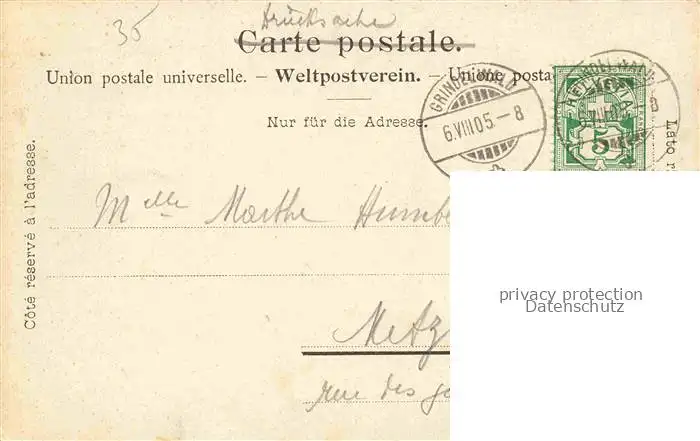 35
Drucksache
Carte postale.
Union postale universelle. – Weltpostverein. – Unione posta
Nur für die Adresse.
GRINDELWALD
6.VIII.05.-8
HELVETIA
5
Côté réservé à l'adresse.
Lato r
Mlle Marthe Humbe
Metz
rue des
privacy protection
Datenschutz